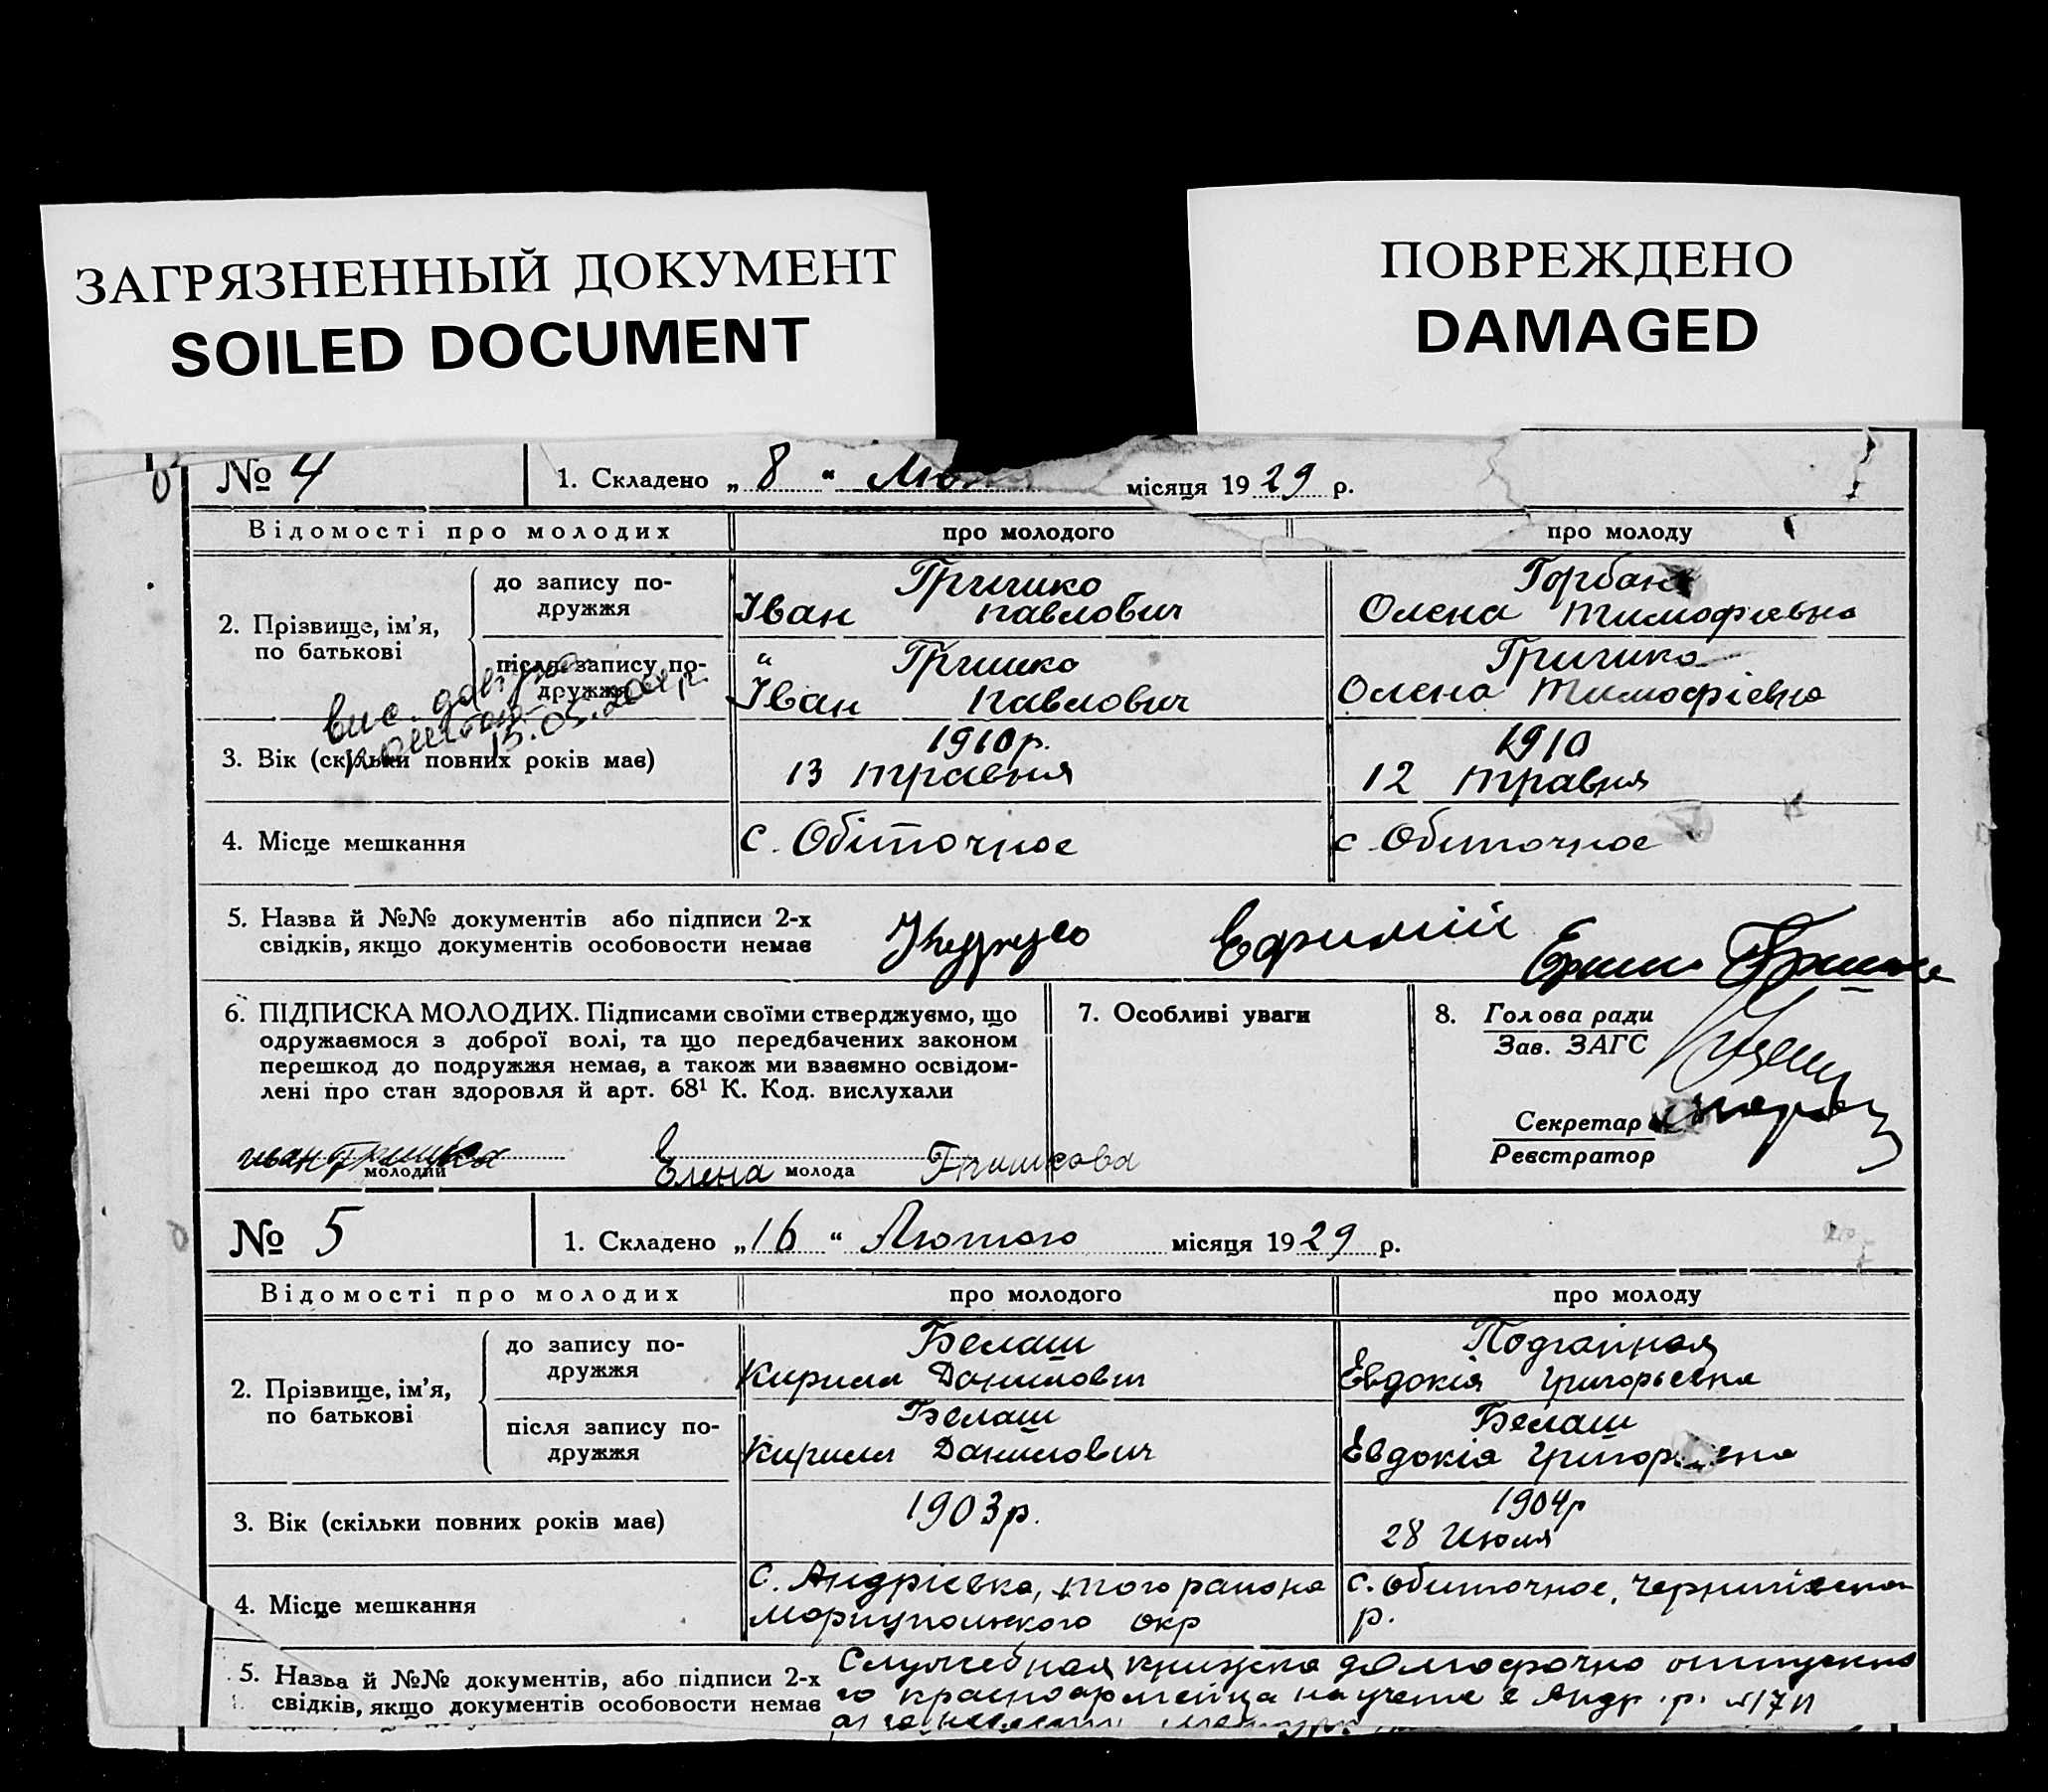 ЗАГРЯЗНЕННЫЙ ДОКУМЕНТ
SOILED DOCUMENT
ПОВРЕЖДЕНО
DAMAGED
№ 4
1. Складено „ 8 “ місяця 1929 р.
Відомості про молодих
про молодого
про молоду
2. Прізвище, ім’я,
по батькові
до запису по-
дружжя
Гришко
Іван Павлович
Горбань
Олена Тимофієвна
після запису по-
дружжя
" Гришко
Іван Павлович
Гришко
Олена Тимофієвна
15.05.
3. Вік (скільки повних років має)
1910р.
13 травня
1910
12 травня
4. Місце мешкання
с. Обіточное
с. Обиточное
5. Назва й №№ документів або підписи 2-х
свідків, якщо документів особовости немає
Ефимій
6. ПІДПИСКА МОЛОДИХ. Підписами своїми стверджуємо, що
одружаємося з доброї волі, та що передбачених законом
перешкод до подружжя немає, а також ми взаємно освідом-
лені про стан здоровля й арт. 68¹ К. Код. вислухали
Иван Гришко
молодий
Елена молода Гришкова
7. Особливі уваги
8. Голова ради
Зав. ЗАГС
Секретар
Реєстратор
№ 5
1. Складено „ 16 “ Лютого місяця 1929 р.
Відомості про молодих
про молодого
про молоду
2. Прізвище, ім’я,
по батькові
до запису по-
дружжя
Белаш
Кирилл Данилович
Подгайная
Евдокія Григорьевна
після запису по-
дружжя
Белаш
Кирилл Данилович
Белаш
Евдокія Григорьевна
3. Вік (скільки повних років має)
1903р.
1904р
28 Июля
4. Місце мешкання
с. Андрієвка, того района
Мариупольского окр
с. Обиточное, Чернигівского
р.
5. Назва й №№ документів, або підписи 2-х
свідків, якщо документів особовости немає
Служебная книжка долгосрочно отпускно
го красноармейца на учете в Андр. р. №